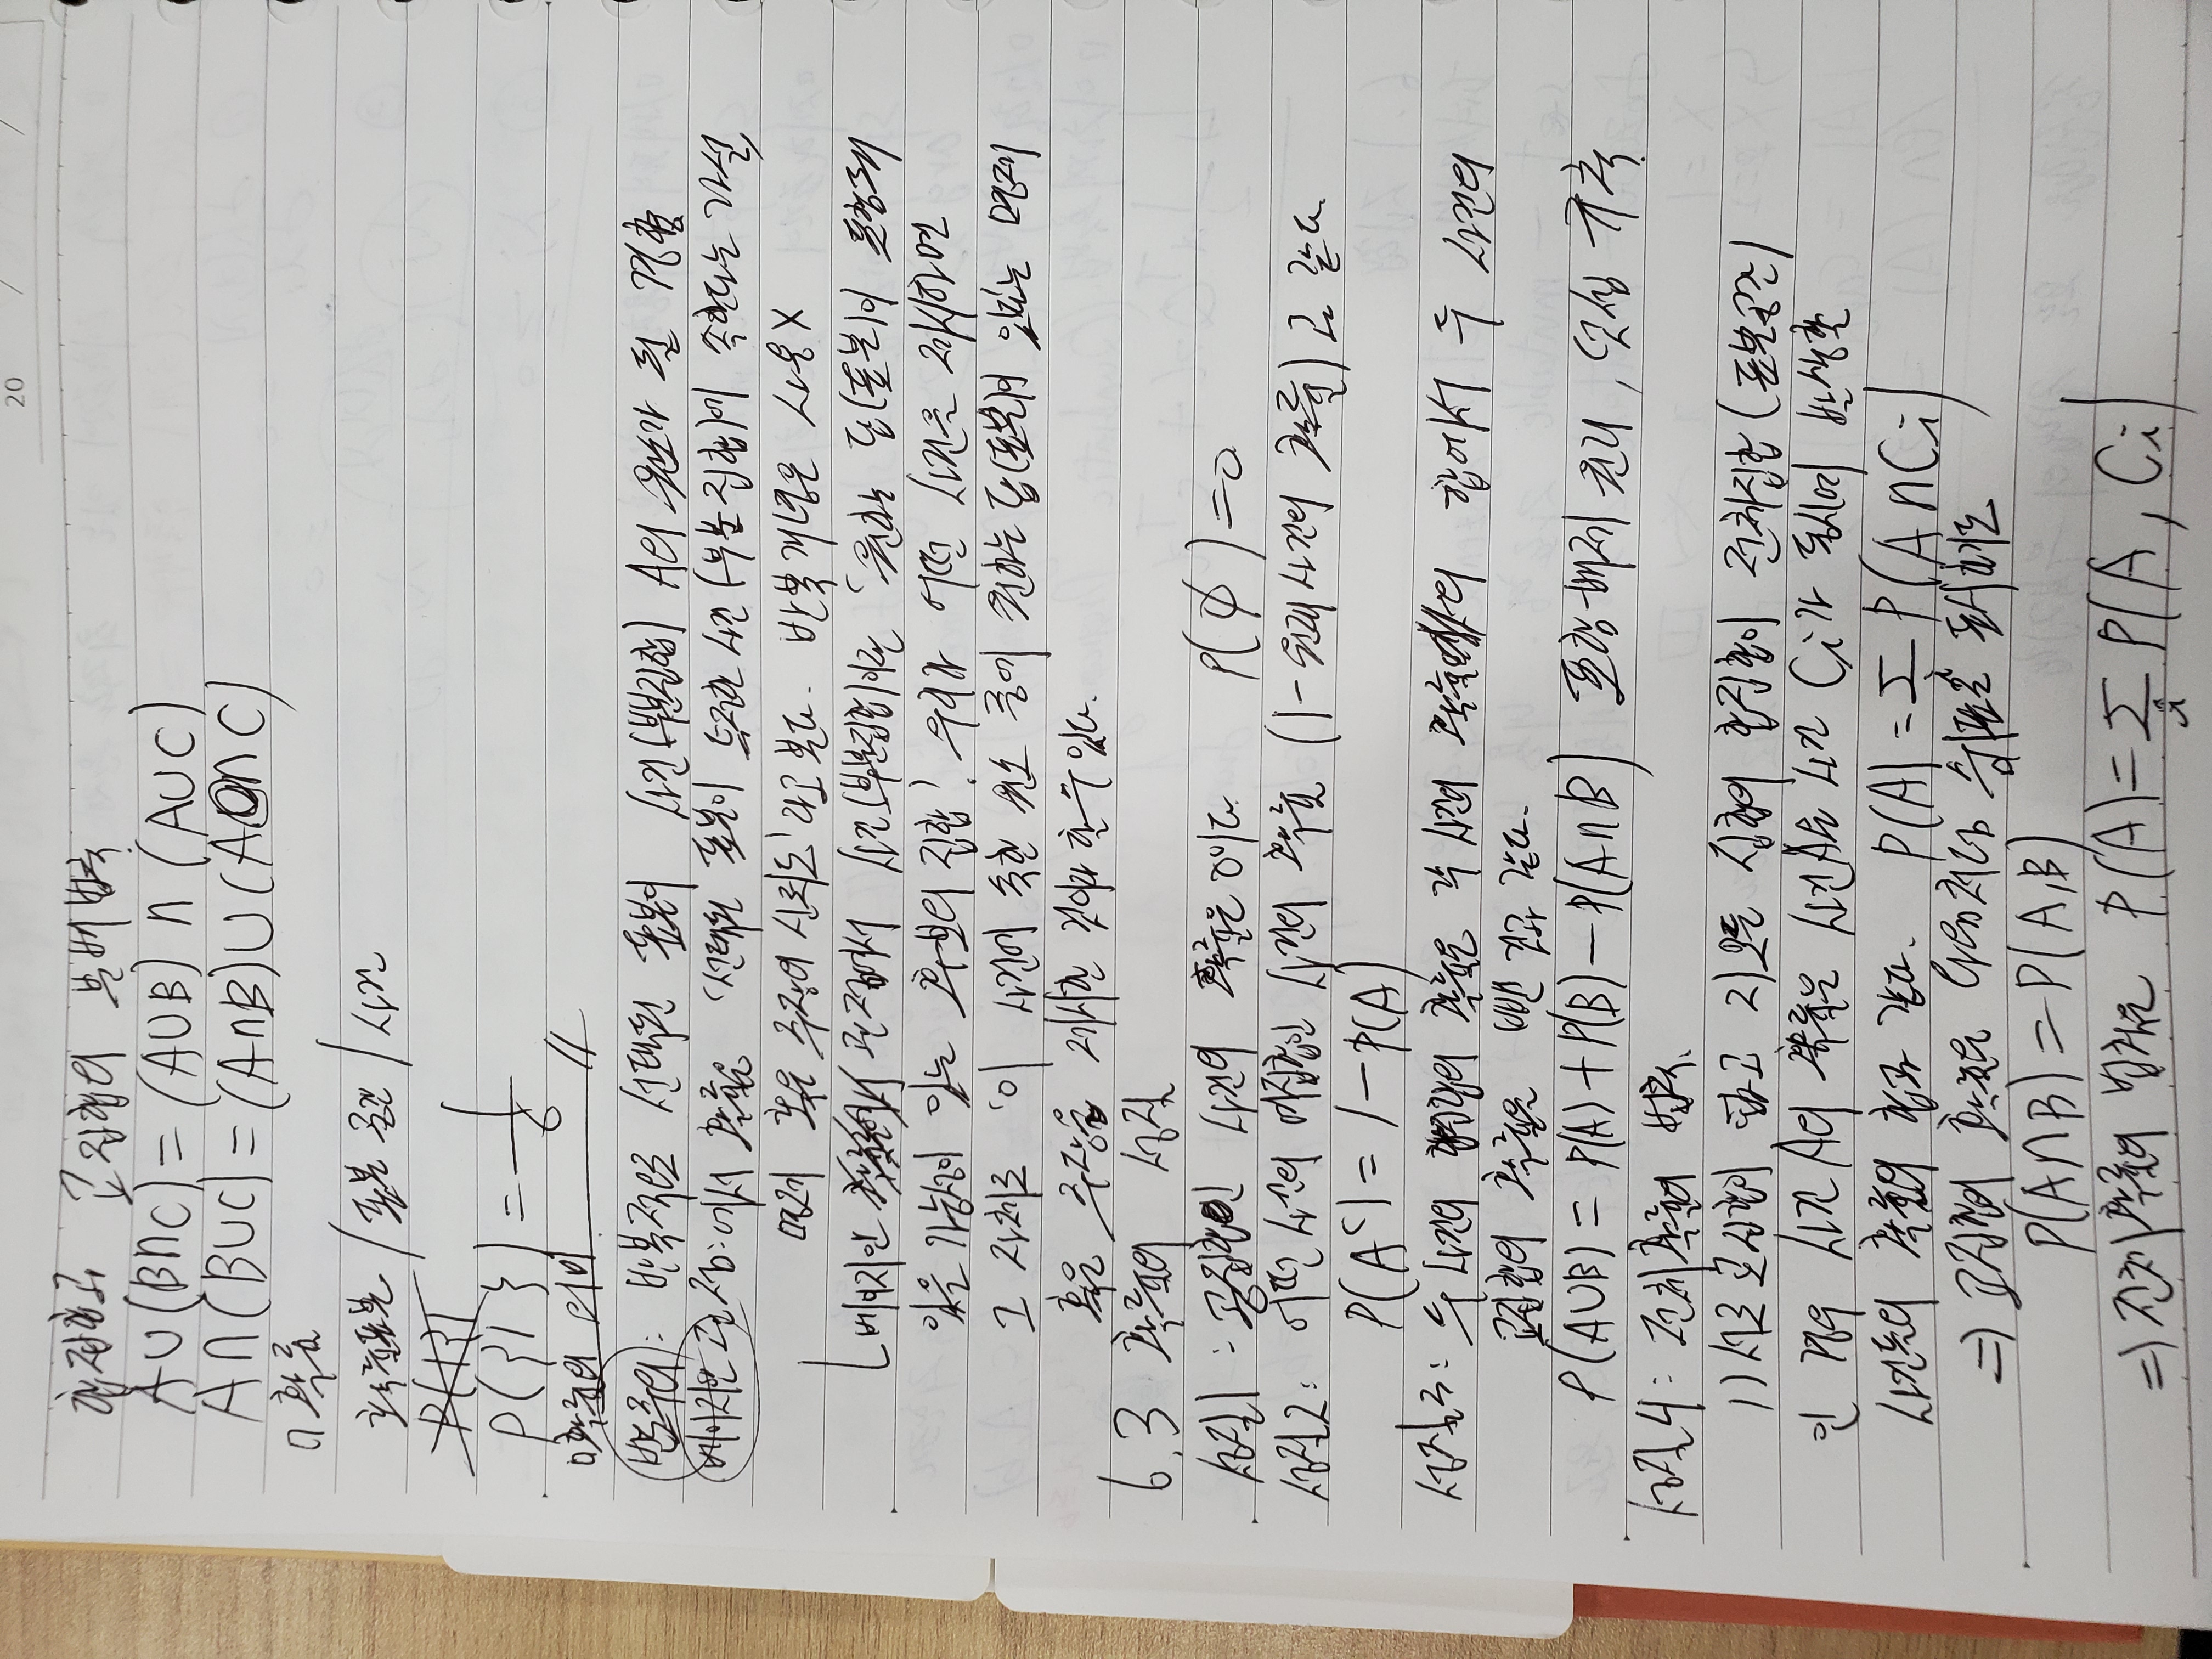 20 / /
합집합과 교집합의 분배법칙
A∪(B∩C) = (A∪B) ∩ (A∪C)
A∩(B∪C) = (A∩B)∪(A∩C)
□ 확률
확률표본 / 표본 공간 / 사건
P({1}) = 1/6
□확률의 의미 //
빈도주의 : 반복적으로 선택된 표본이 사건(부분집합) A의 원소가 될 경향
베이지안 관점: 에서 확률은 '선택된 표본이 특정한 사건(부분집합)에 속한다는 가설,
명제 혹은 주장의 신뢰도'라고 본다. 반복개념은 사용X
└ 베이지안 관점에서 사건(부분집합)이란 '원하는 답(표본)이 포함돼
있을 가능성이 있는 후보의 집합'. 우리가 어떤 사건을 제시하면
그 자체로 '이 사건에 속한 원소 중에 원하는 답(표본)이 있다는 명제
혹은 주장을 제시한 것이라 할 수 있다.
6.3 확률의 성질
성질1 : 공집합인 사건의 확률은 0이다. P(∅) = 0
성질2: 어떤 사건의 여집합인 사건의 확률 (1-원래 사건의 확률)과 같다.
P(Aᶜ) = 1-P(A)
성질3: 두 사건의 합집합의 확률은 각 사건의 확률의 합에서 두 사건의
교집합의 확률을 뺀 것과 같다.
P(A∪B) = P(A)+P(B)-P(A∩B) 포함-배제 원리, 덧셈 규칙
성질4: 전체 확률의 법칙.
1) 서로 교집합이 없고 2) 모든 집합의 합집합이 전체집합(표본공간)
인 경우 사건 A의 확률은 사건A와 사건 Ci가 동시에 발생할
사건들의 확률의 합과 같다. P(A) = Σi P(A∩Ci)
⇒ 교집합의 확률은 다음처럼 쉼표로 표시해도
P(A∩B) = P(A,B)
⇒ 전체 확률의 법칙은 P(A) = Σi P(A, Ci)